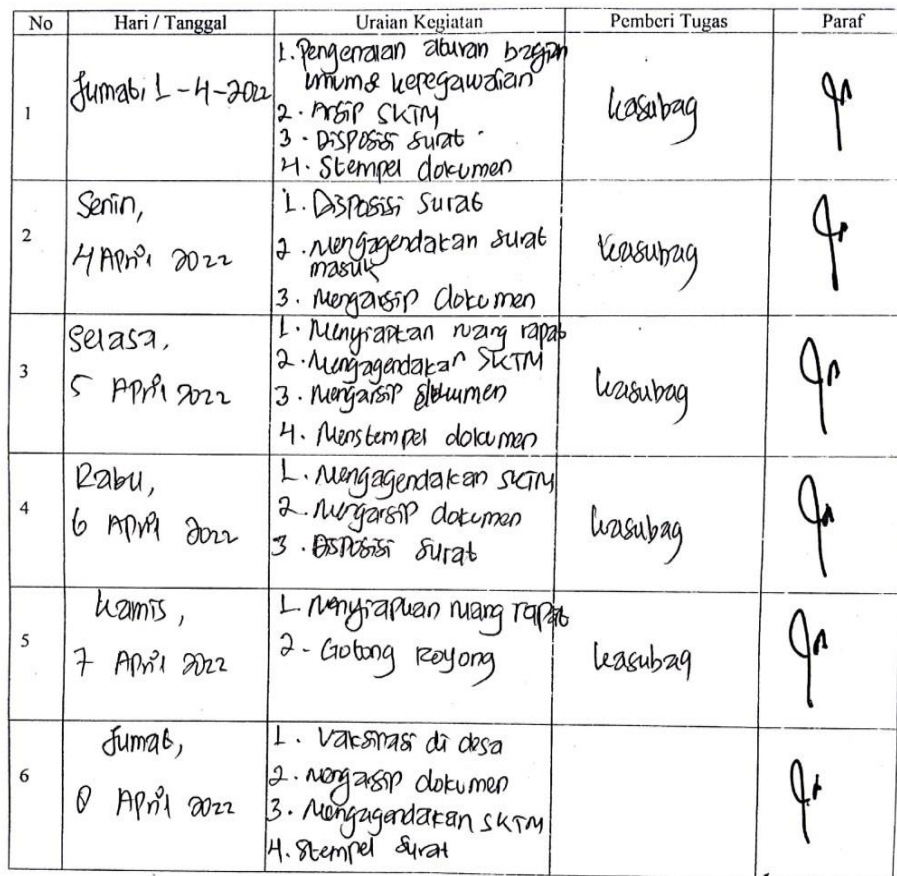 No Hari / Tanggal Uraian Kegiatan Pemberi Tugas Paraf
1
Jumat, 1-4-2022
1. Pengenalan aturan bagian
umum & kepegawaian
2. Arsip SKTM
3. Disposisi surat
4. Stempel dokumen
Kasubag
2
Senin,
4 April 2022
1. Disposisi Surat
2. Mengagendakan surat
masuk
3. Mengarsip dokumen
Kasubag
3
Selasa,
5 April 2022
1. Menyiapkan ruang rapat
2. Mengagendakan SKTM
3. Mengarsip dokumen
4. Menstempel dokumen
Kasubag
4
Rabu,
6 April 2022
1. Mengagendakan SKTM
2. Mengarsip dokumen
3. Disposisi Surat
Kasubag
5
Kamis,
7 April 2022
1. Menyiapkan ruang rapat
2. Gotong Royong
Kasubag
6
Jumat,
8 April 2022
1. Vaksinasi di desa
2. Mengarsip dokumen
3. Mengagendakan SKTM
4. Stempel Surat